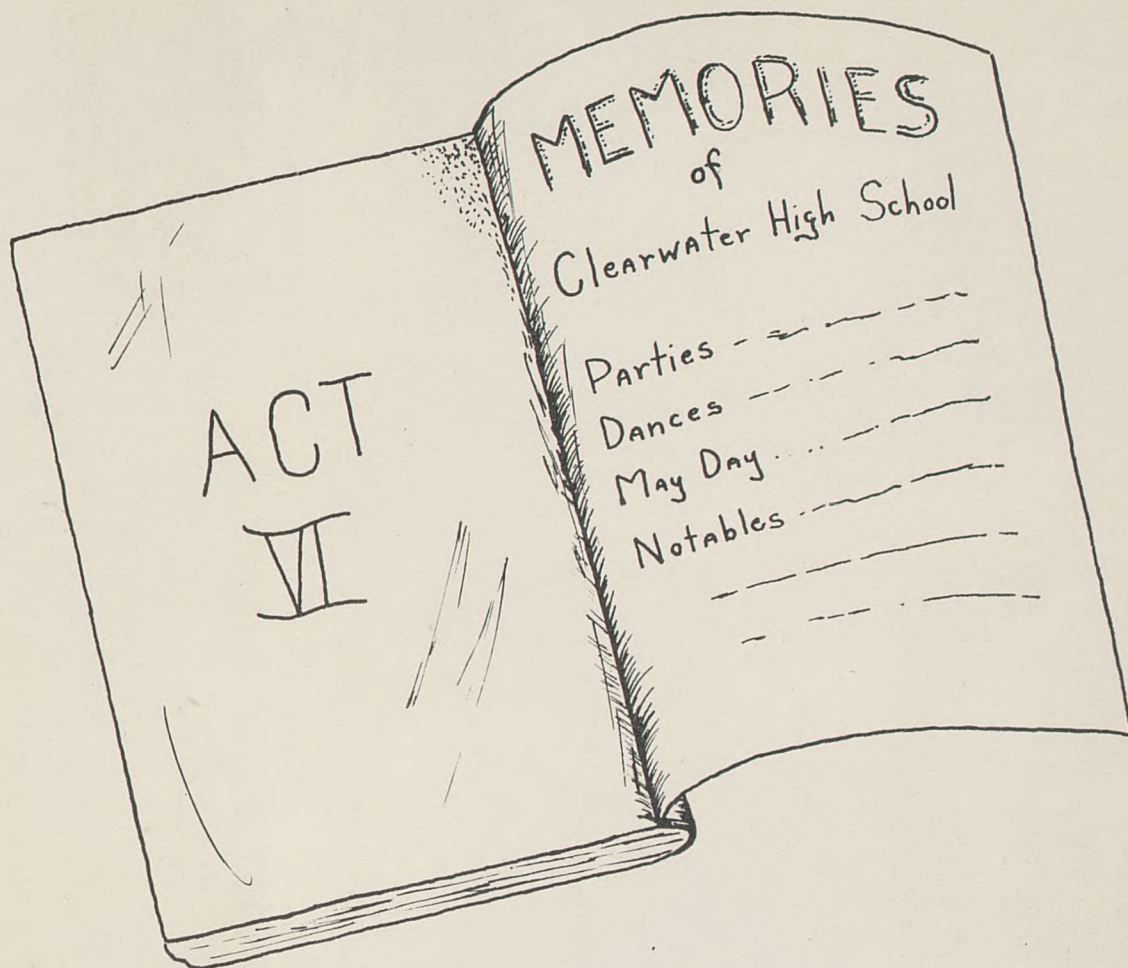 ACT
VI
MEMORIES
of
Clearwater High School
Parties
Dances
May Day
Notables